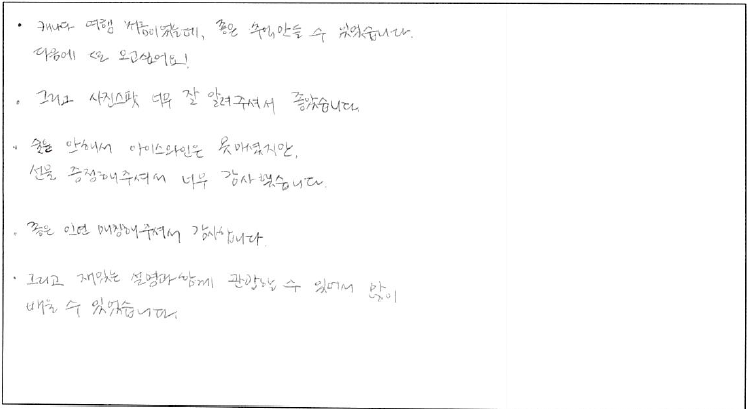 • 캐나다 여행 처음이었는데, 좋은 추억 만들 수 있었습니다.
다음에 또 오고싶어요!
• 그리고 사진스팟 너무 잘 알려주셔서 좋았습니다.
• 술는 안해서 아이스와인은 못마셨지만,
선물 증정해주셔서 너무 감사했습니다.
• 좋은 인연 매칭해주셔서 감사합니다.
• 그리고 재밌는 설명과 함께 관람할 수 있어서 많이
배울 수 있었습니다.